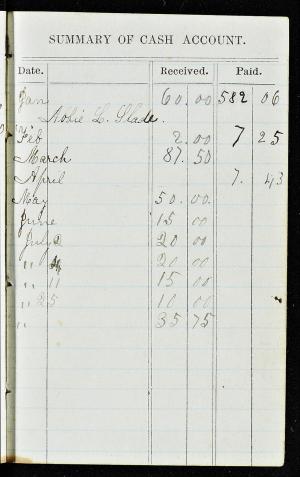 SUMMARY OF CASH ACCOUNT.
Date. Received. Paid.
Jan 60.00 582 06
Abbie L. Slade.
Feb 2.00 7 25
March 87.50
April 7. 43
May 50.00
June 15 00
July 2 20 00
" 4 20 00
" 11 15 00
" 25 10 00
" 35 75